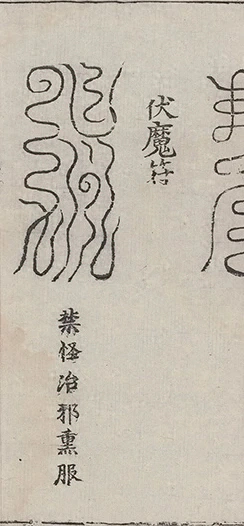 伏魔符
禁怪治邪熏服